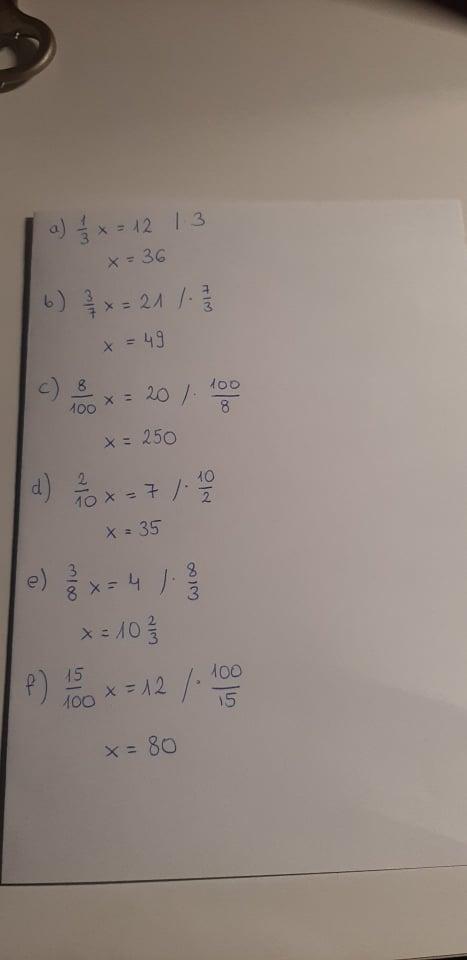 a) 1/3 x = 12 | · 3
x = 36
b) 3/7 x = 21 / · 7/3
x = 49
c) 8/100 x = 20 / · 100/8
x = 250
d) 2/10 x = 7 / · 10/2
x = 35
e) 3/8 x = 4 / · 8/3
x = 10 2/3
f) 15/100 x = 12 / · 100/15
x = 80